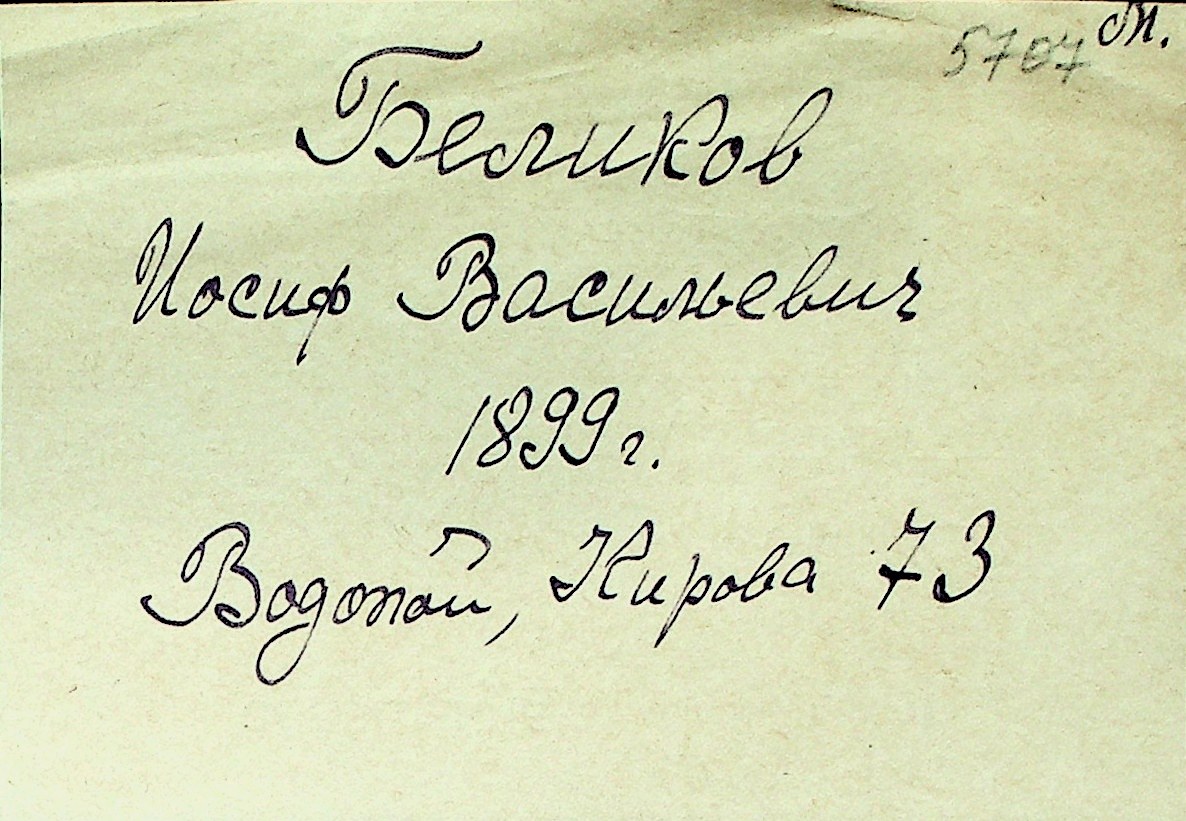 5707 м.
Беликов
Иосиф Васильевич
1899 г.
Водопой, Кирова 73